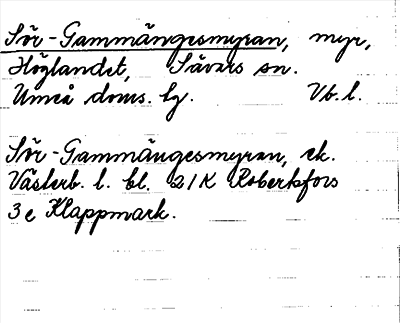 Sör-Gammängesmyran, myr,
Höglandet, Sävars sn.
Umeå doms. hg. Vb. l.
Sör-Gammängesmyran, ek.
Västerb. l. bl. 21K Robertsfors
3e Klappmark.